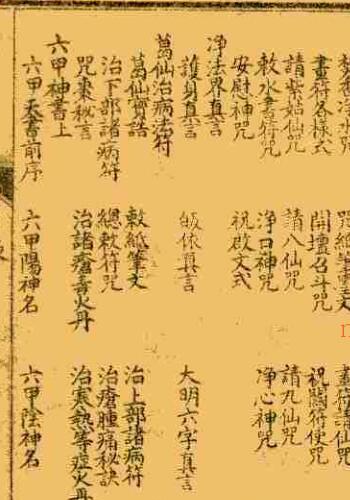 畫符各樣式 開壇召斗咒 祝闕符使咒
請紫姑仙咒 請八仙咒 請九仙咒
敕水書符咒 净口神咒 净心神咒
安慰神咒 祝啟文式
净法界真言
護身真言 皈依真言 大明六字真言
葛仙治病法符
葛仙寶誥 敕紙筆文 治上部諸病符
治下部諸病符 總敕符咒 治瘡腫痛秘訣
咒棗秘言 治諸瘡毒火丹 治寒熱等瘟火丹
六甲神書上
六甲天書前序 六甲陽神名 六甲陰神名